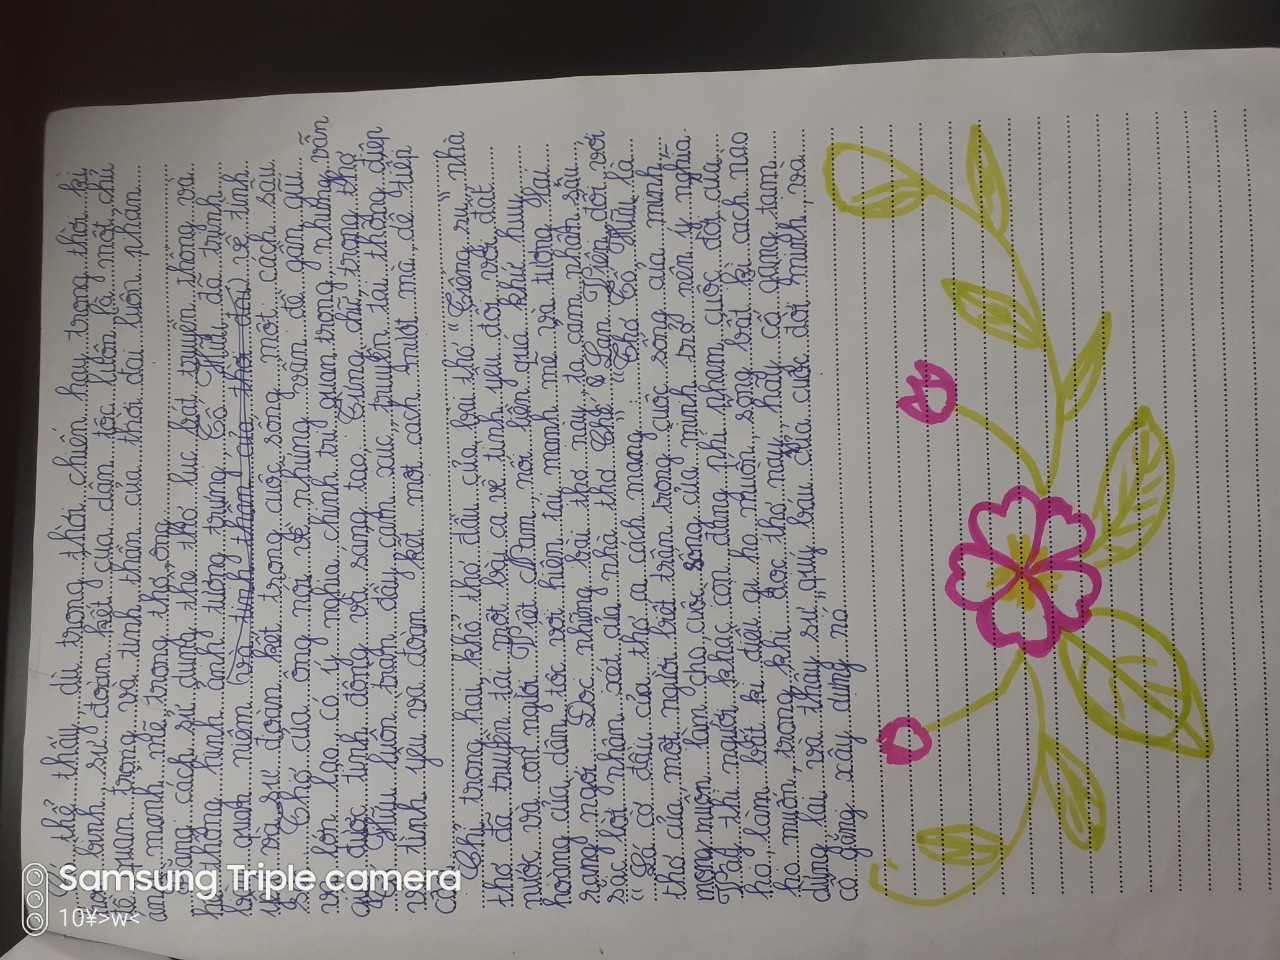 thể thấy dù trong thời chiến hay trong thời kì
hoà bình, sự đoàn kết của dân tộc luôn là một chủ
đề quan trọng và tinh thần của thời đại luôn phản
ánh mạnh mẽ trong thơ ông
Bằng cách sử dụng thể thơ lục bát truyền thống và
hệ thống hình ảnh tượng trưng, Tố Hữu đã trình
quan niệm (và tinh thần của thời đại) về tình
yêu và sự đoàn kết trong cuộc sống một cách sâu
sắc. Thơ của ông nói về những vấn đề gần gũi
và lớn lao, có ý nghĩa chính trị quan trọng, nhưng vẫn
giữ được tính động và sáng tạo. Từng chữ trong thơ
Tố Hữu luôn tràn đầy cảm xúc, truyền tải thông điệp
về tình yêu và đoàn kết một cách mượt mà, dễ tiếp
cận.
Chỉ trong hai khổ thơ đầu của bài thơ "Tiếng ru", nhà
thơ đã truyền tải một bài ca về tình yêu đối với đất
nước và con người Việt Nam, nối liền quá khứ huy
hoàng của dân tộc với hiện tại mạnh mẽ và tương lai
rạng ngời. Đọc những bài thơ này, ta cảm nhận sâu
sắc lời nhận xét của nhà thơ Chế Lan Viên đối với
"Lá cờ đầu của thơ ca cách mạng": "Thơ Tố Hữu là
thơ của một người biết trân trọng cuộc sống của mình,
mong muốn làm cho cuộc sống của mình trở nên ý nghĩa.
Vậy thì người khác còn đừng phí phạm cuộc đời của
họ, làm bất kì điều gì họ muốn, sống bất kì cách nào
họ muốn, trong khi đọc thơ này, hãy cố gắng tạm
dừng lại và thấy sự quý báu của cuộc đời mình, và
cố gắng xây dựng nó"
Samsung Triple camera
10¥>w<